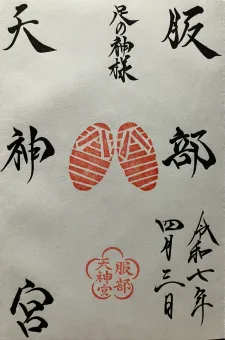 服部
天神宮
足の神様
服部
天神宮
令和七年
四月三日